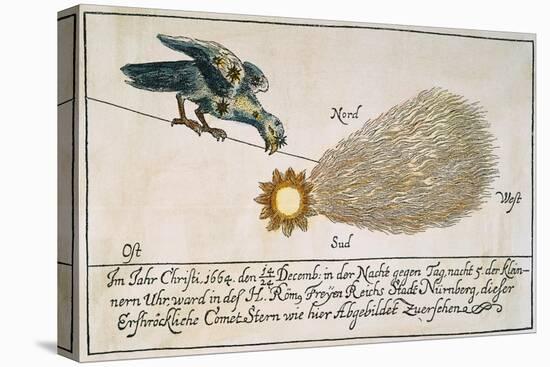 Nord
West
Ost
Sud
Im Jahr Christi, 1664. den 14/24 Decemb: in der Nacht gegen Tag, nacht 5. der klein-
nern Uhr, ward in des H. Röm, Freÿen Reichs Stadt Nürnberg, dieser
Erschröckliche Comet Stern wie hier Abgebildet Zuersehen